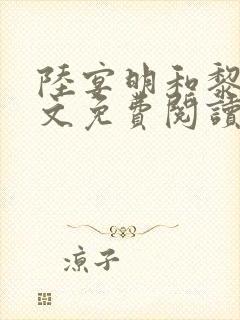 陸宴明和黎
文免費閱讀
涼子